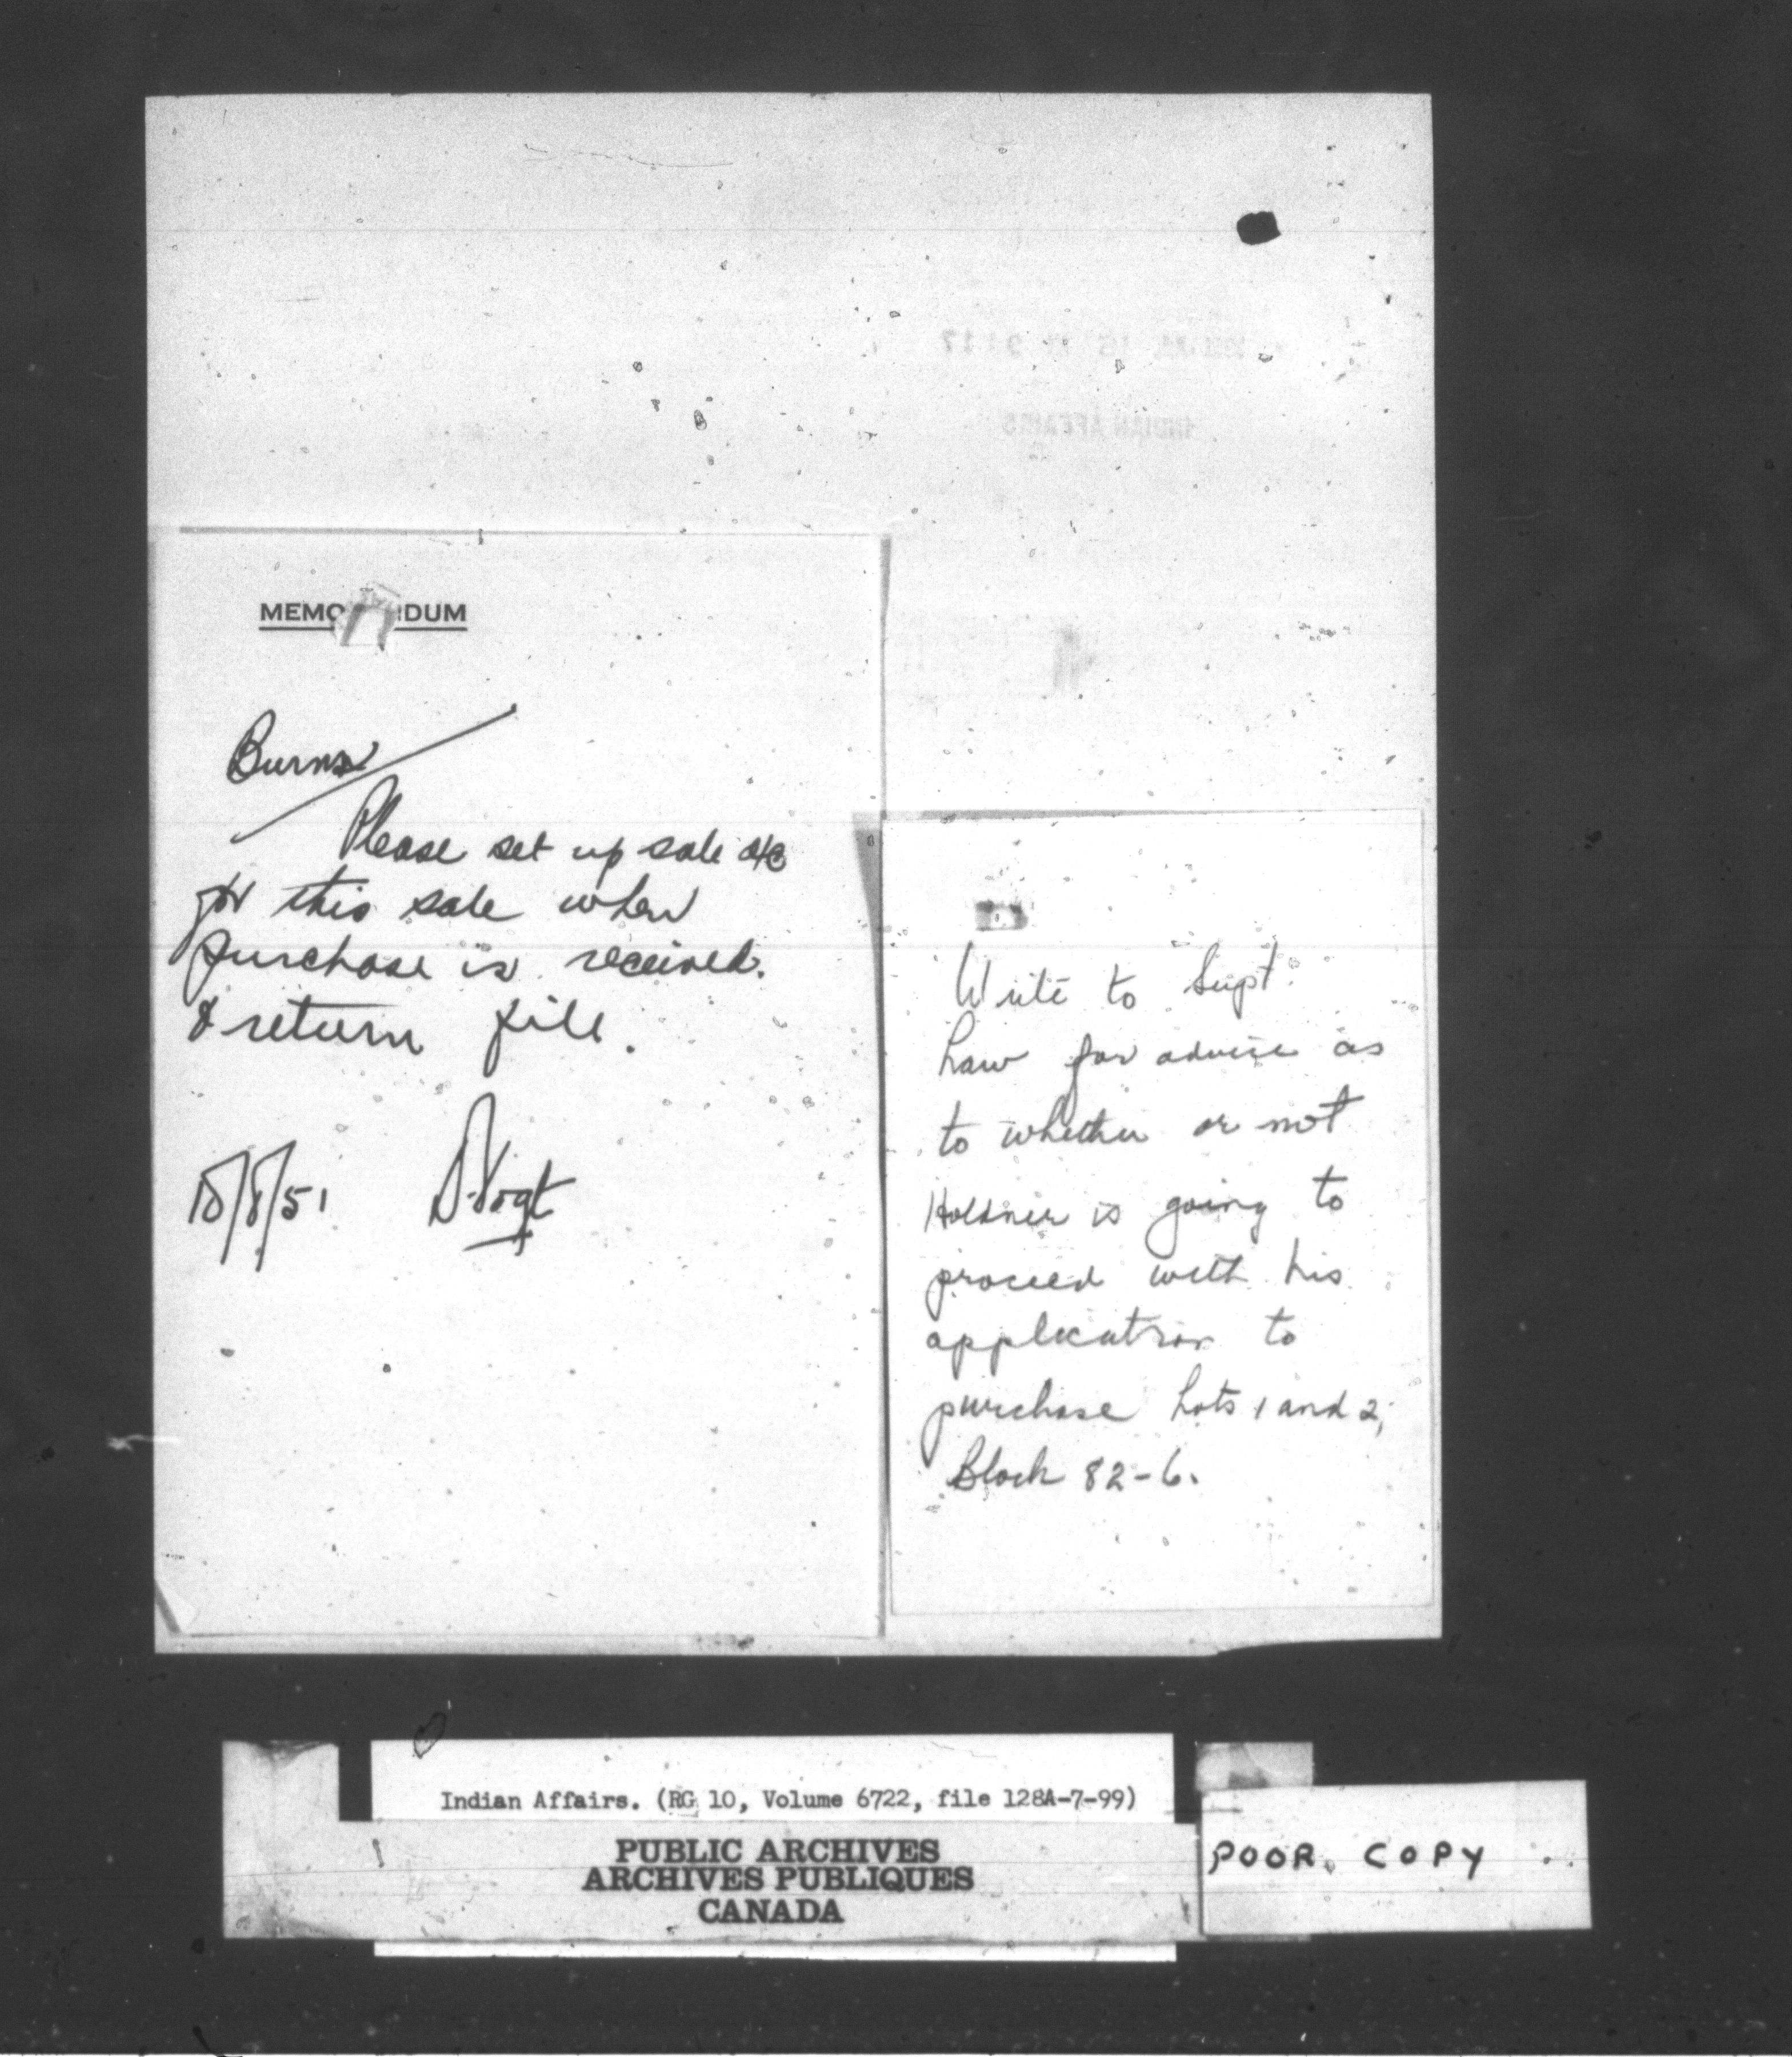 MEMO DUM
Burns
Please set up sale a/c
for this sale when
purchase is received.
& return file.
18/8/51 Vogt
Write to Supt.
Law for advice as
to whether or not
Holdner is going to
proceed with his
application to
purchase Lots 1 and 2,
Block 82-6.
INDIAN AFFAIRS
Indian Affairs. (RG 10, Volume 6722, file 128A-7-99)
PUBLIC ARCHIVES
ARCHIVES PUBLIQUES
CANADA
POOR COPY